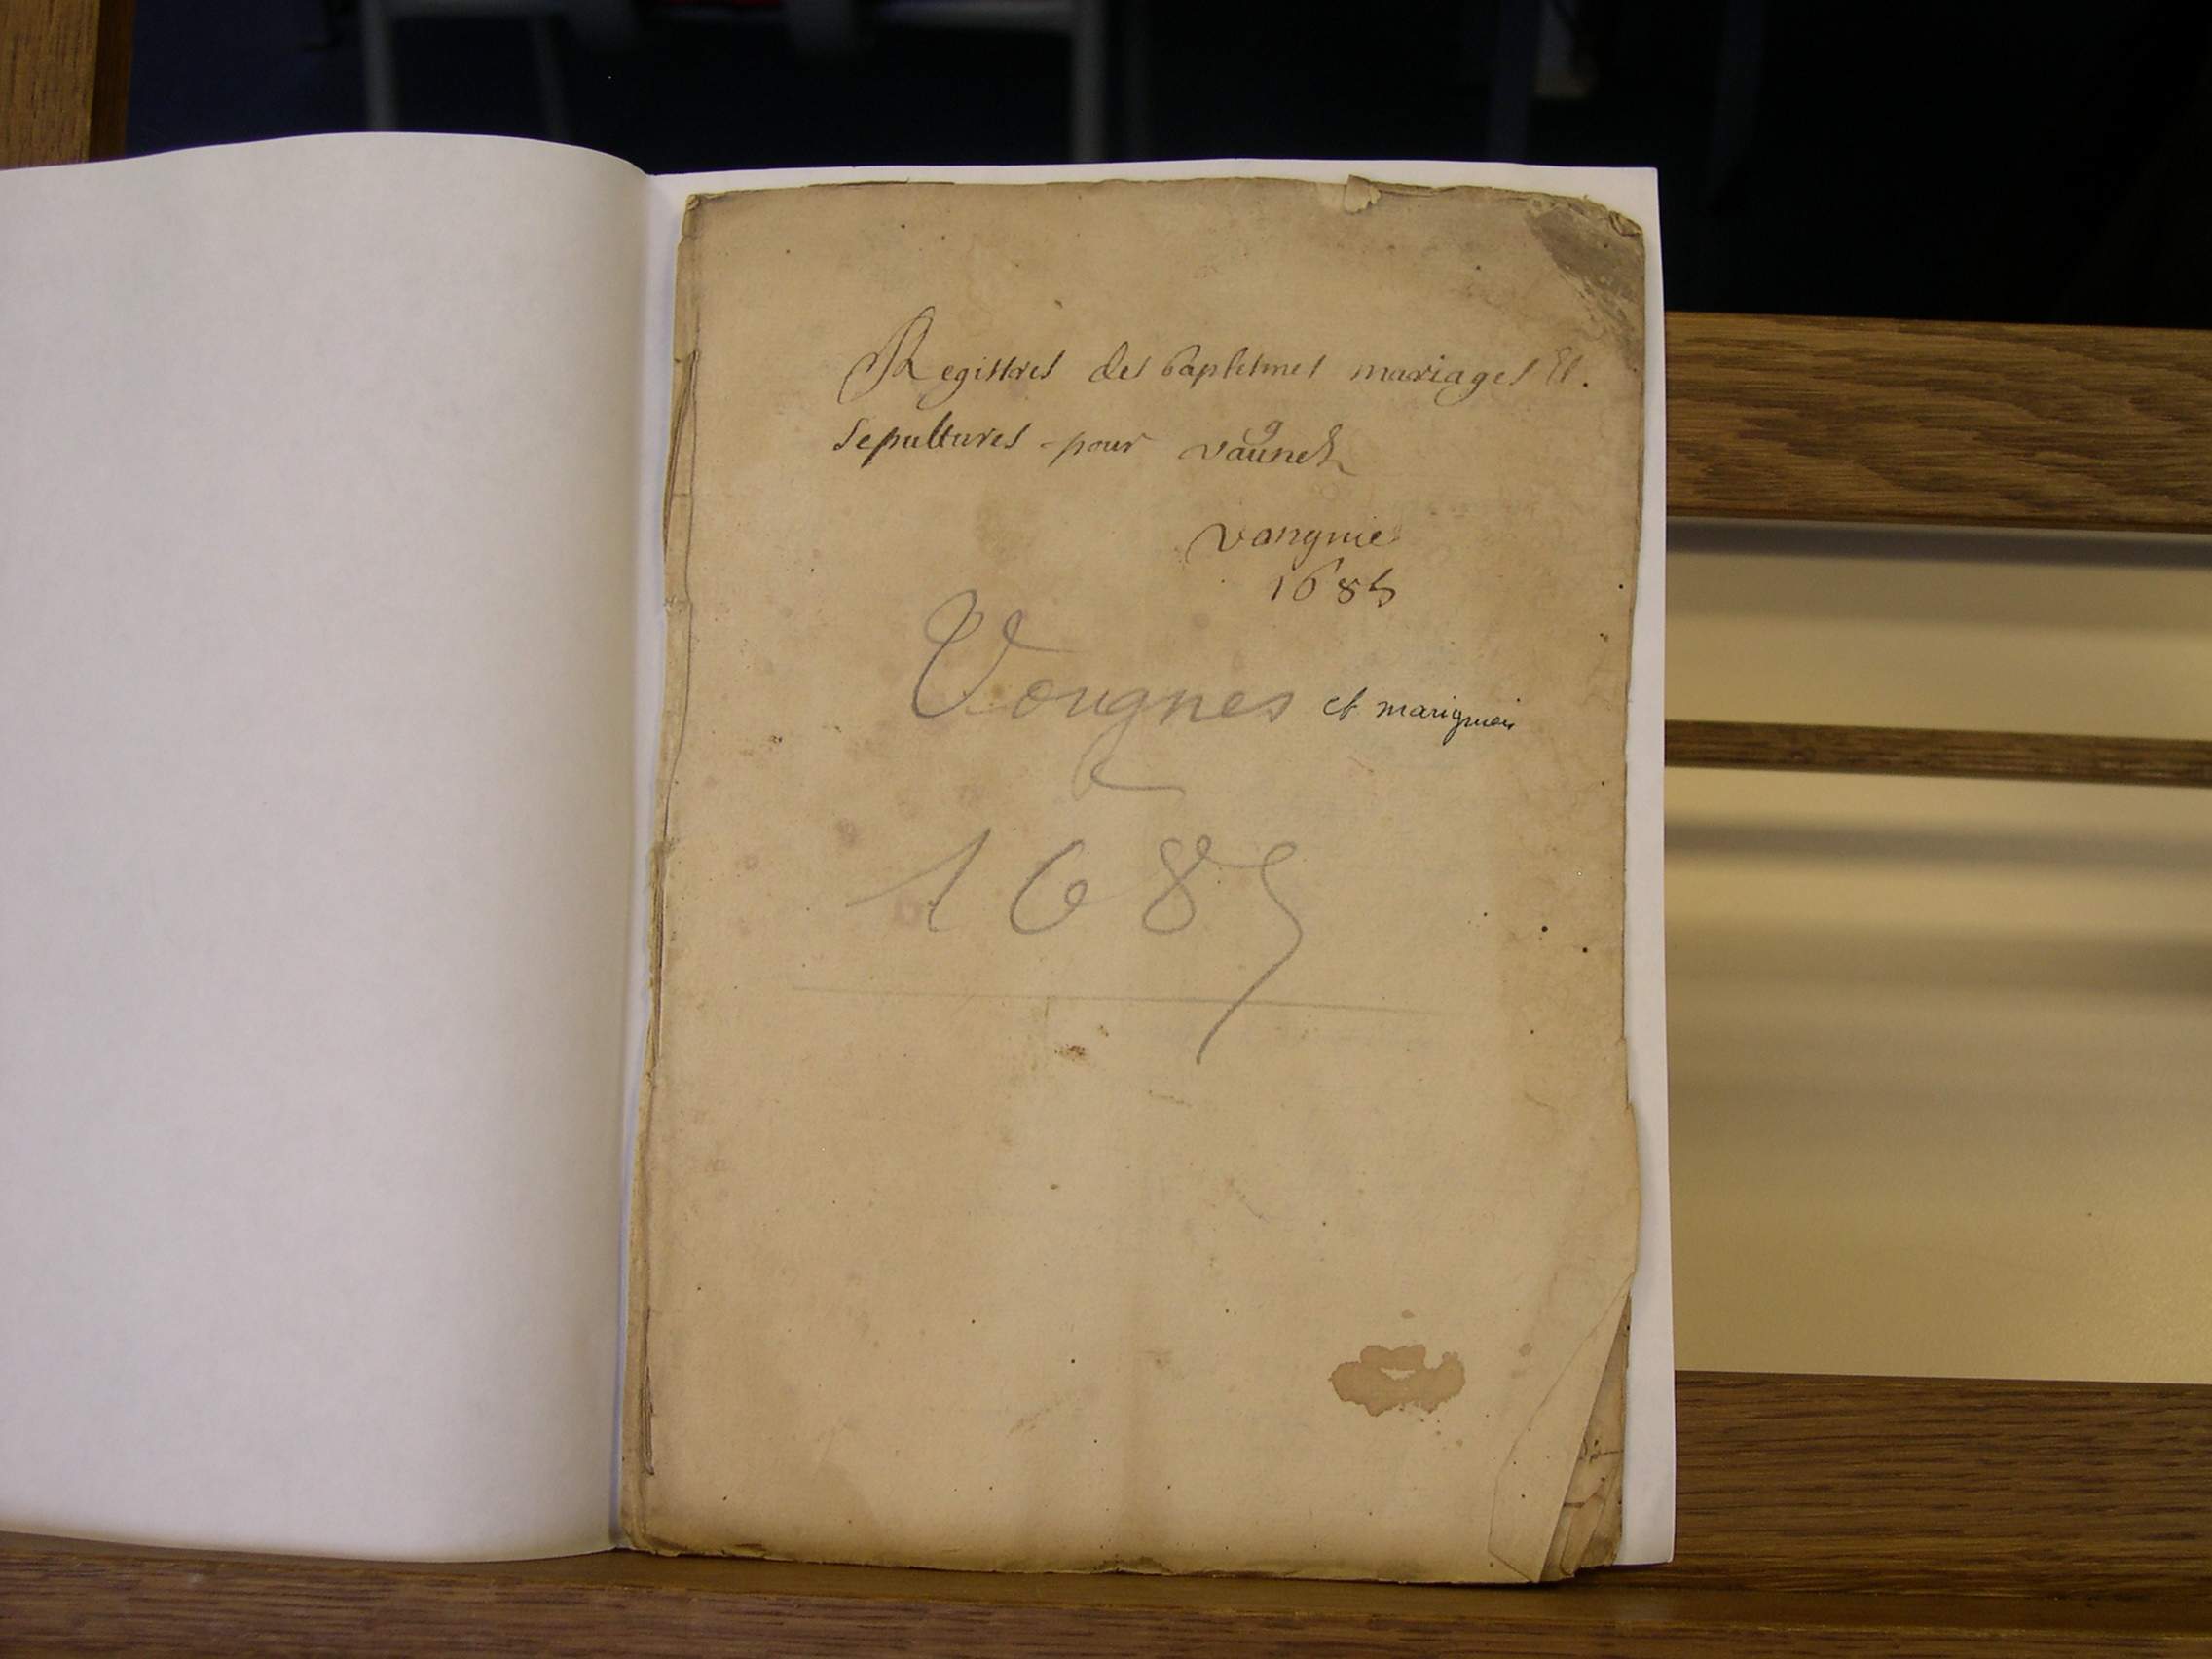 Registres des baptesmes mariages Et.
sepultures pour vaugnes
vongnie
1685
Vougnes et marignieu
1685